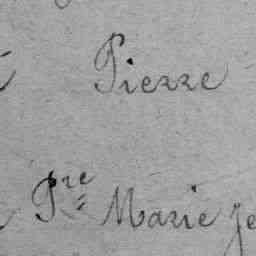 Pierre
Pre Marie Je